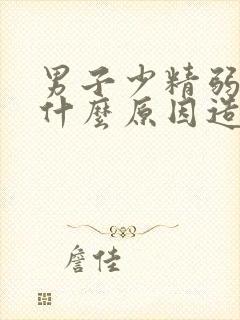 男子少精弱
什麼原因造
詹佳